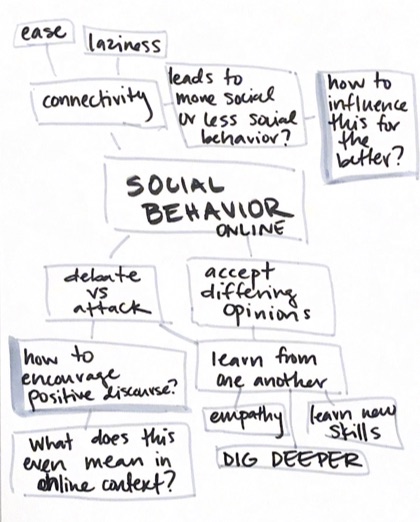 ease
laziness
connectivity
leads to
more social
or less social
behavior?
how to
influence
this for
the
better?
SOCIAL
BEHAVIOR
ONLINE
debate
vs
attack
accept
differing
opinions
how to
encourage
positive discourse?
learn from
one another
empathy
learn new
skills
DIG DEEPER
What does this
even mean in
online context?